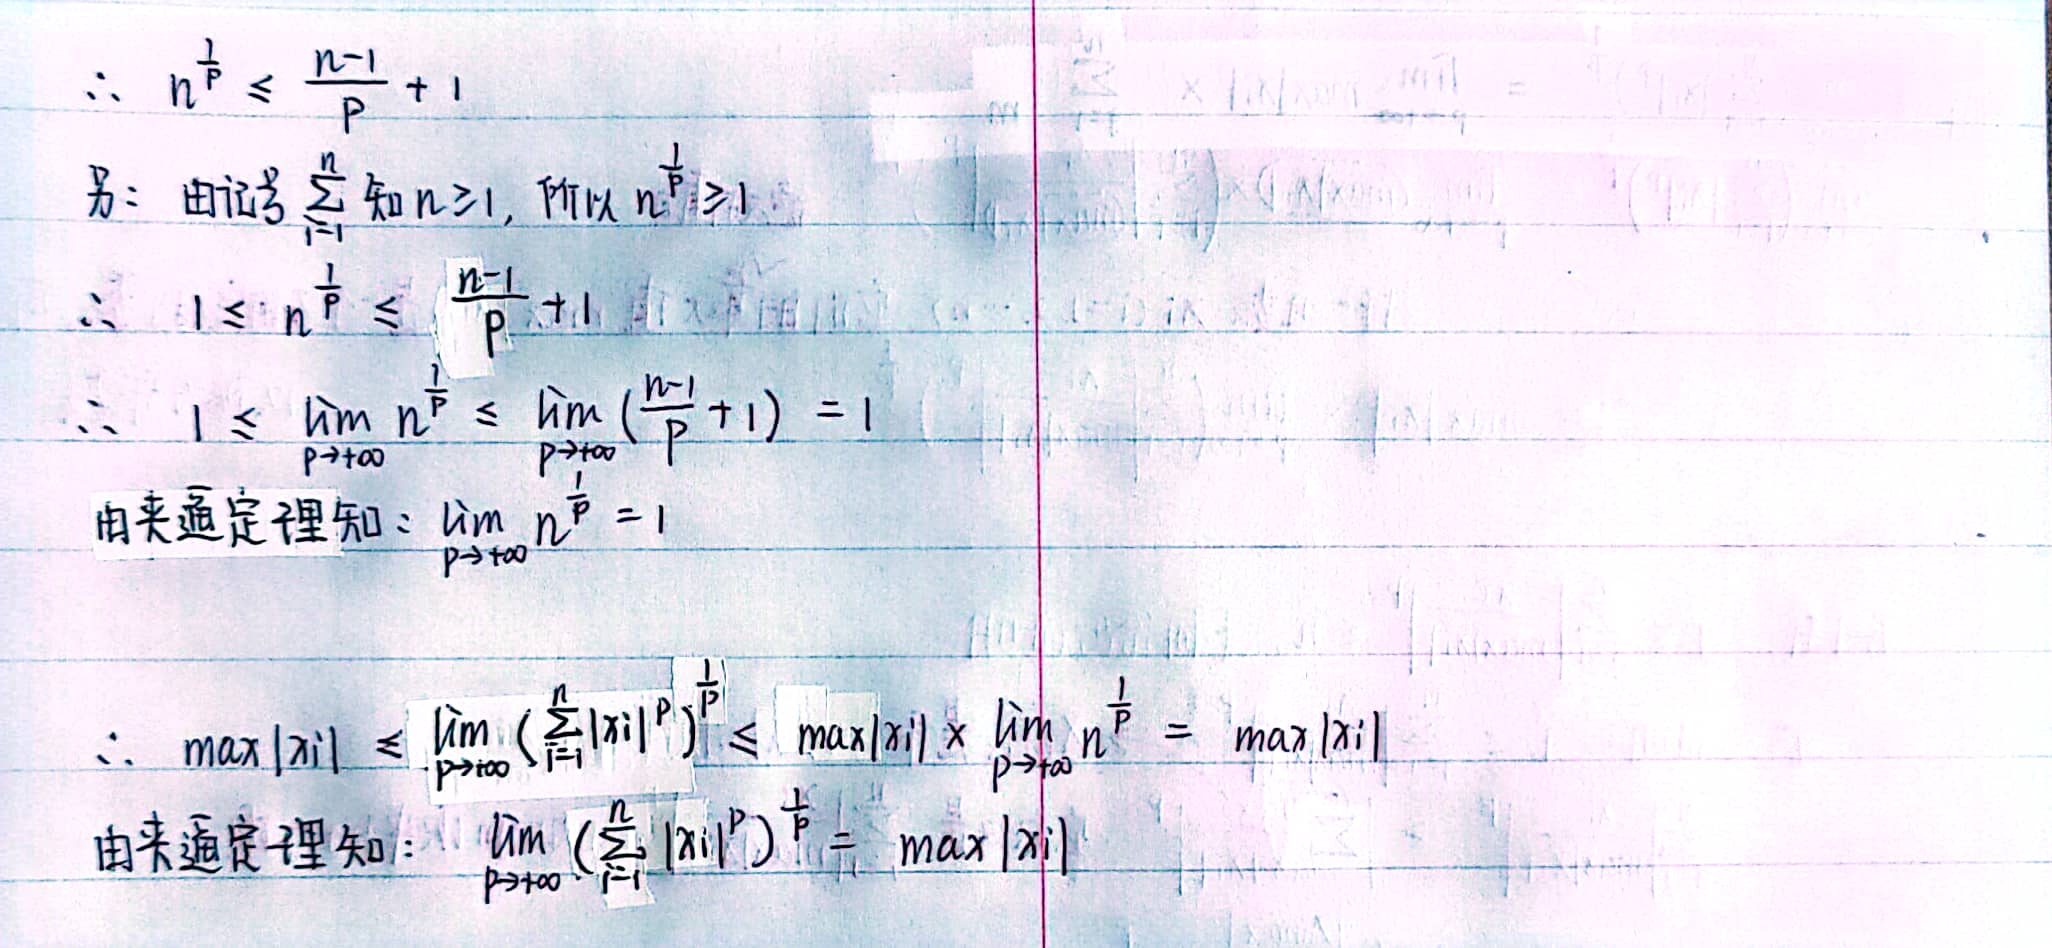 ∴ n^{1/p} ≤ \frac{n-1}{p} + 1
另: 由记号 \sum_{i=1}^{n} 知 n≥1, 所以 n^{1/p} ≥ 1
∴ 1 ≤ n^{1/p} ≤ \frac{n-1}{p} + 1
∴ 1 ≤ \lim_{p→+∞} n^{1/p} ≤ \lim_{p→+∞} (\frac{n-1}{p} + 1) = 1
由夹逼定理知: \lim_{p→+∞} n^{1/p} = 1
∴ max|xi| ≤ \lim_{p→+∞} (\sum_{i=1}^{n} |xi|^p)^{1/p} ≤ max|xi| × \lim_{p→+∞} n^{1/p} = max|xi|
由夹逼定理知: \lim_{p→+∞} (\sum_{i=1}^{n} |xi|^p)^{1/p} = max|xi|